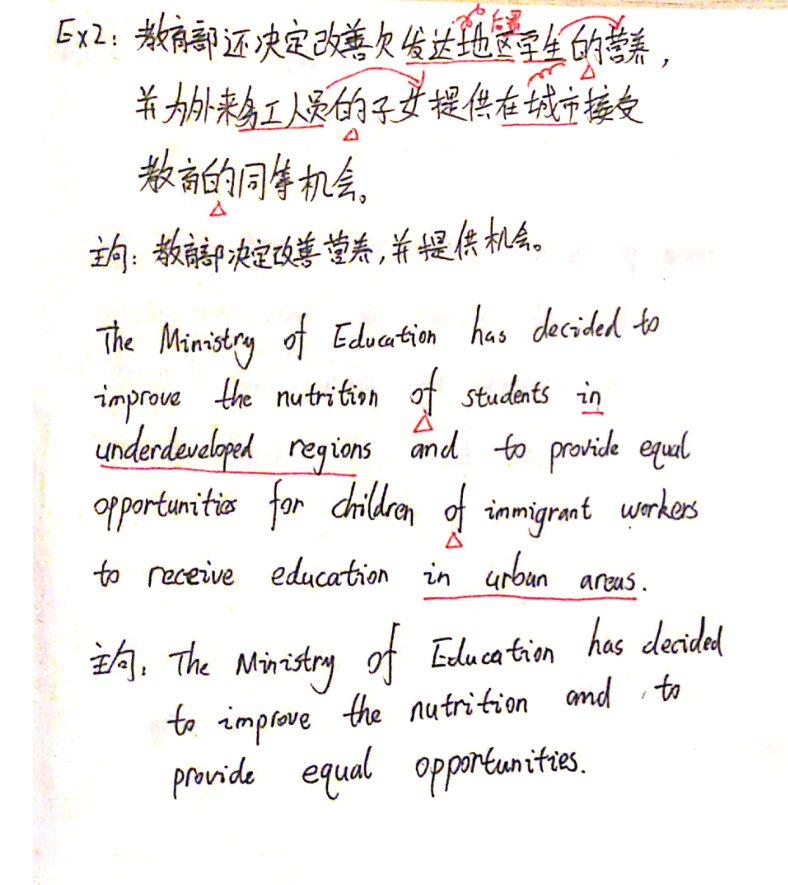 Ex2: 教育部还决定改善欠发达地区学生的营养,
后置
并为外来务工人员的子女提供在城市接受
教育的同等机会。
主句: 教育部决定改善营养,并提供机会。
The Ministry of Education has decided to
improve the nutrition of students in
underdeveloped regions and to provide equal
opportunities for children of immigrant workers
to receive education in urban areas.
主句: The Ministry of Education has decided
to improve the nutrition and to
provide equal opportunities.